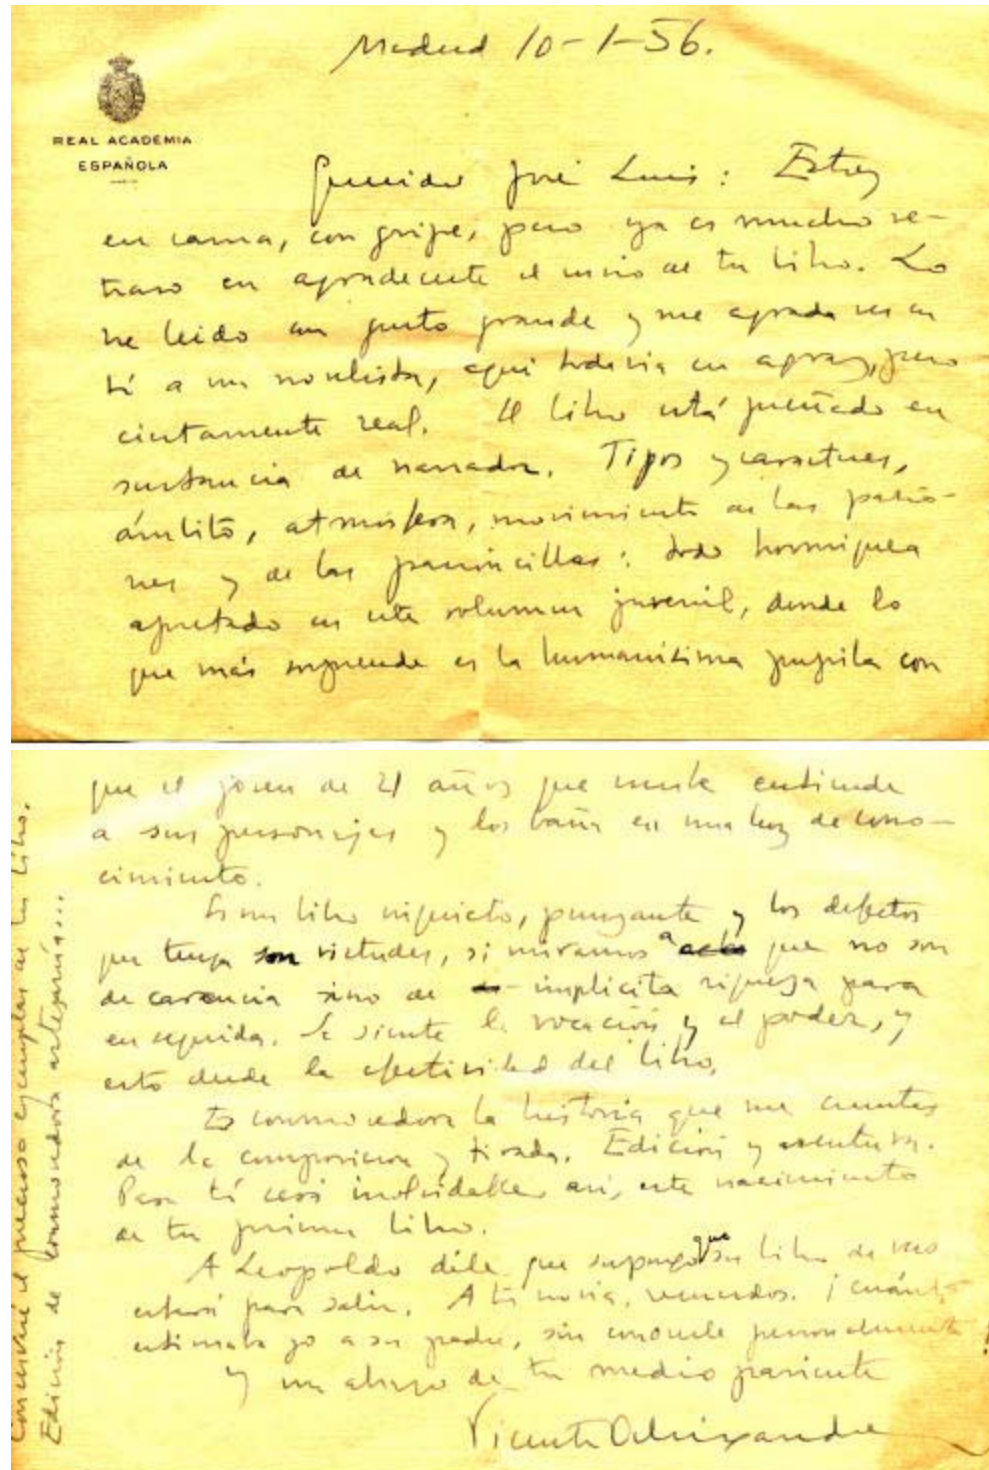 Madrid 10-1-56.
REAL ACADEMIA
ESPAÑOLA
Querido José Luis: Estoy
en cama, con gripe, pero ya es mucho re-
traso en agradecerte el envío de tu libro. Lo
he leído con gusto grande y me agrada ver en
tí a un novelista, aquí todavía en agraz, pero
ciertamente real. El libro está preñado en
sustancia de narrador. Tipos y caracteres,
ámbito, atmósfera, movimiento de las pasio-
nes y de las pasioncillas: todo hormiguea
apretado en este volumen juvenil, donde lo
que más sorprende es la humanísima pupila con
que el joven de 21 años que escribe entiende
a sus personajes y los baña en una luz de cono-
cimiento.
Es un libro inquieto, punzante y los defectos
que tenga son virtudes, si miramos a que no son
de carencia sino de implícita riqueza para
en seguida. Se siente la vocación y el poder, y
esto desde la efectividad del libro.
Es conmovedora la historia que me cuentas
de la composición y tirada. Edición y aventura.
Para tí será inolvidable, así, este nacimiento
de tu primer libro.
A Leopoldo dile que supongo que su libro de
estará para salir. A tu novia, recuerdos. ¡Cuánto
estimaba yo a su padre, sin conocerle personalmente!
y un abrazo de tu medio pariente
Vicente Aleixandre
Conservaré el precioso ejemplar de tu libro.
Edición de conmovedora artesanía...